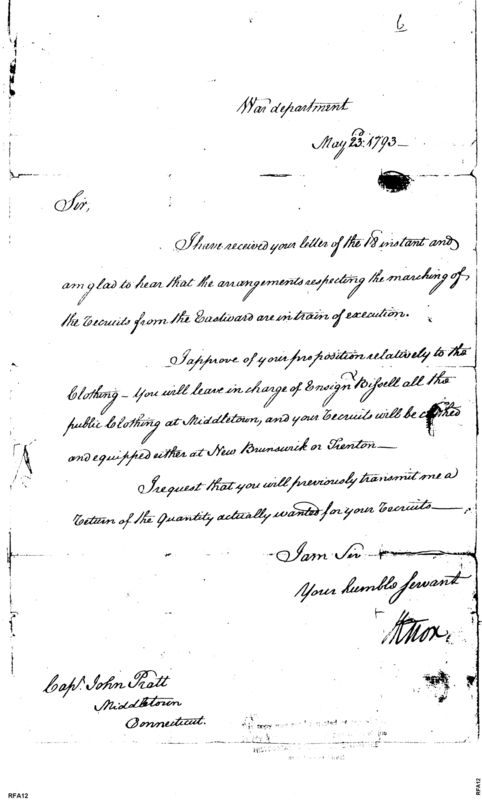 6
War department
May 23d. 1793 —
Sir,
I have received your letter of the 18 instant and
am glad to hear that the arrangements respecting the marching of
the Recruits from the Eastward are in train of execution.
I approve of your proposition relatively to the
Clothing — You will leave in charge of Ensign Bissell all the
public Clothing at Middletown, and your Recruits will be clothed
and equipped either at New Brunswick or Trenton —
I request that you will previously transmit me a
Return of the Quantity actually wanted for your Recruits —
I am Sir
Your humble Servant
HKnox
Capt. John Pratt
Middletown
Connecticut.
RFA12
RFA12